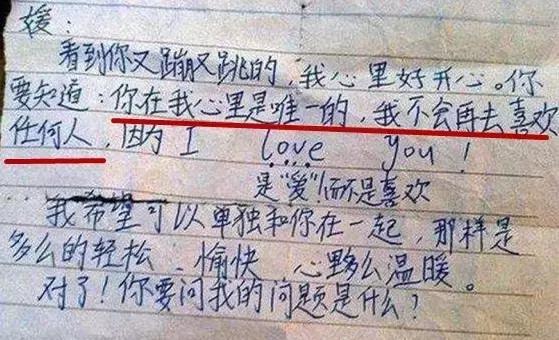 媛：
看到你又蹦又跳的，我心里好开心。你
要知道：你在我心里是唯一的，我不会再去喜欢
任何人，因为 I love you！
是“爱”！而不是喜欢
我希望可以单独和你在一起，那样是
多么的轻松、愉快 心里多么温暖。
对了！你要问我的问题是什么？